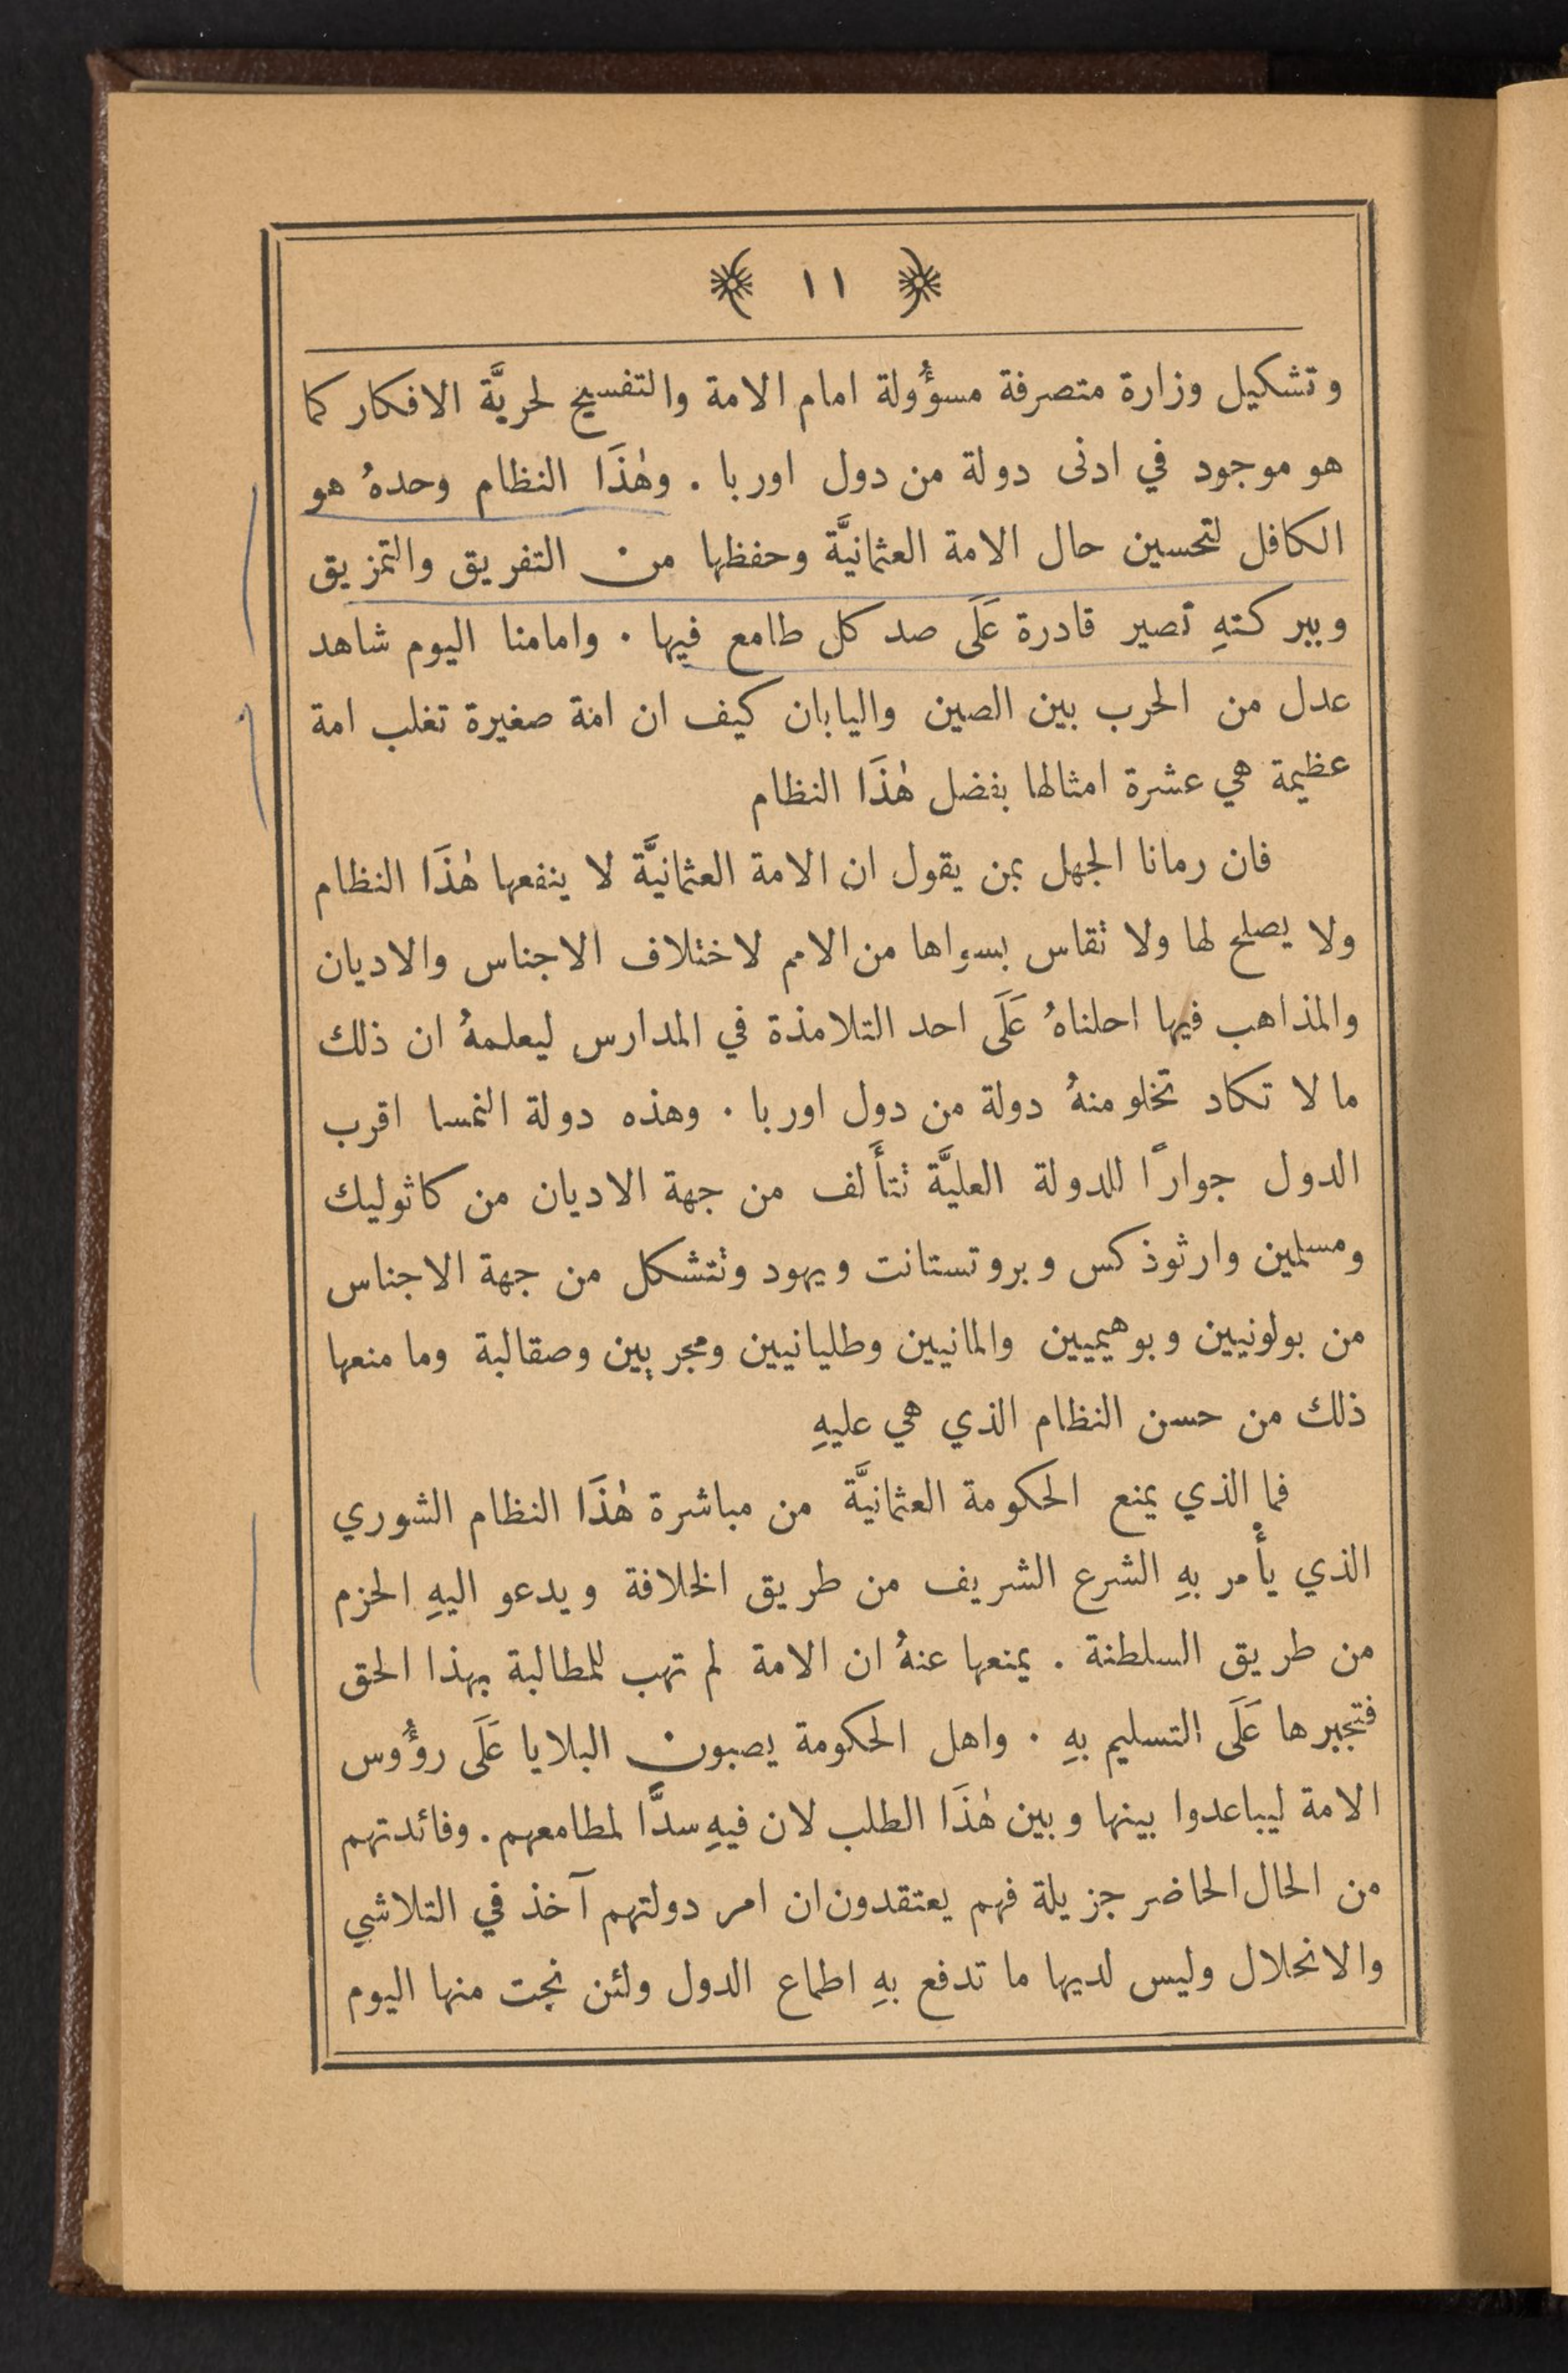 ١١
وتشكيل وزارة متصرفة مسؤُولة امام الامة والتفسيح لحريَّة الافكار كما
هو موجود في ادنى دولة من دول اوربا . وهٰذَا النظام وحدهُ هو
الكافل لتحسين حال الامة العثمانيَّة وحفظها من التفريق والتمزيق
وببركتهِ تصير قادرة عَلَى صد كل طامع فيها . وامامنا اليوم شاهد
عدل من الحرب بين الصين واليابان كيف ان امة صغيرة تغلب امة
عظيمة هي عشرة امثالها بفضل هٰذَا النظام
فان رمانا الجهل بمن يقول ان الامة العثمانيَّة لا ينفعها هٰذَا النظام
ولا يصلح لها ولا تقاس بسواها من الامم لاختلاف الاجناس والاديان
والمذاهب فيها احلناهُ عَلَى احد التلامذة في المدارس ليعلمهُ ان ذلك
ما لا تكاد تخلو منهُ دولة من دول اوربا . وهذه دولة النمسا اقرب
الدول جوارًا للدولة العليَّة نتأَلف من جهة الاديان من كاثوليك
ومسلمين وارثوذكس وبروتستانت ويهود ونتشكل من جهة الاجناس
من بولونيين وبوهيميين والمانيين وطليانيين ومجريين وصقالبة وما منعها
ذلك من حسن النظام الذي هي عليهِ
فما الذي يمنع الحكومة العثمانيَّة من مباشرة هٰذَا النظام الشوري
الذي يأْمر بهِ الشرع الشريف من طريق الخلافة ويدعو اليهِ الحزم
من طريق السلطنة . يمنعها عنهُ ان الامة لم تهب للمطالبة بهذا الحق
فتجبرها عَلَى التسليم بهِ . واهل الحكومة يصبون البلايا عَلَى روؤُوس
الامة ليباعدوا بينها وبين هٰذَا الطلب لان فيهِ سدًّا لمطامعهم . وفائدتهم
من الحال الحاضر جزيلة فهم يعتقدون ان امر دولتهم آخذ في التلاشي
والانحلال وليس لديها ما تدفع بهِ اطماع الدول ولئن نجت منها اليوم